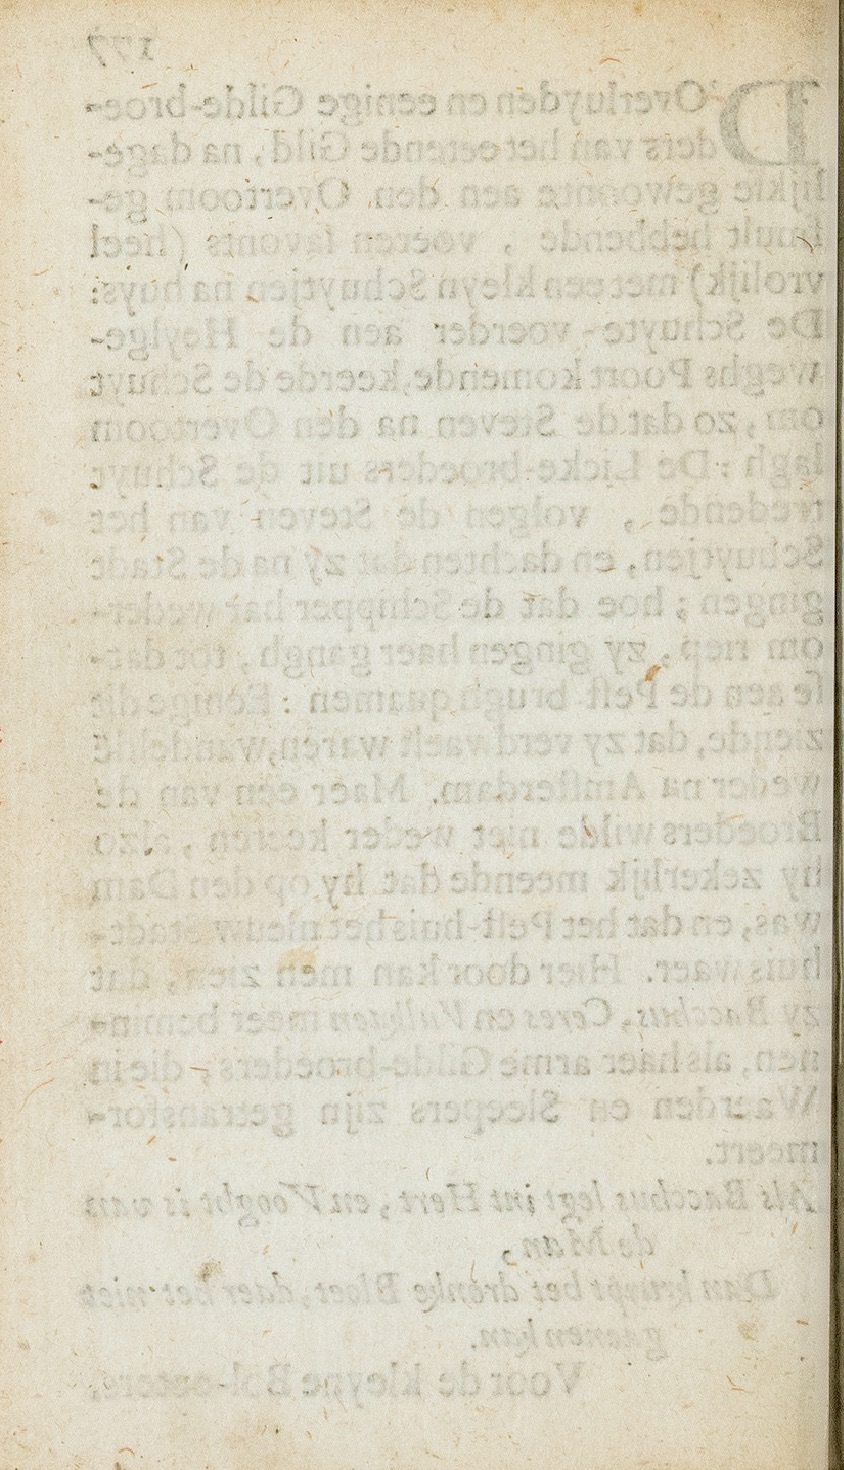 177
D'Overluyden en eenige Gilde-broe-
ders van het eetende Gild, na dage-
lijkse gewoonte aen den Overtoom ge-
smult hebbende, voeren savonts (heel
vrolijk) met een kleyn Schuytjen na huys:
De Schuyte-voerder aen de Heylge-
weghs Poort komende, keerde de Schuyt
om, zo dat de Steven na den Overtoom
lagh: De Licke-broeders uit de Schuyt
tredende, volgen de Steven van het
Schuytjen, en dachten dat zy na de Stadt
gingen; hoe dat de Schipper haer weder-
om riep, zy gingen haer gangh, tot dat-
se aen de Pest brugh quamen: Eenige dit
ziende, dat zy verdwaelt waren, wandelde
weder na Amsterdam. Maer een van de
Broeders wilde niet weder keeren, alzo
hy zekerlijk meende dat hy op den Dam
was, en dat het Pest-huis het nieuw Stadt-
huis waer. Hier door kan men zien, dat
zy Bacchus, Ceres en Vulkaen meer bemin-
nen, als haer arme Gilde-broeders, die in
Waerden en Sleepers zijn getransfor-
meert.
Als Bacchus legt int Hert, en Vooght is van
de Man,
Dan kruypt het dronke Bloet, daer het niet
gaenen kan.
Voor de kleyne Bol-